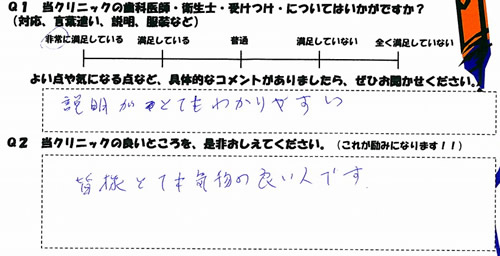 Q1 当クリニックの歯科医師・衛生士・受けつけ・についてはいかがですか?
(対応、言葉遣い、説明、服装など)
非常に満足している 満足している 普通 満足していない 全く満足していない
よい点や気になる点など、具体的なコメントがありましたら、ぜひお聞かせください。
説明がとてもわかりやすい
Q2 当クリニックの良いところを、是非おしえてください。(これが励みになります!!)
皆様とても気持の良い人です。